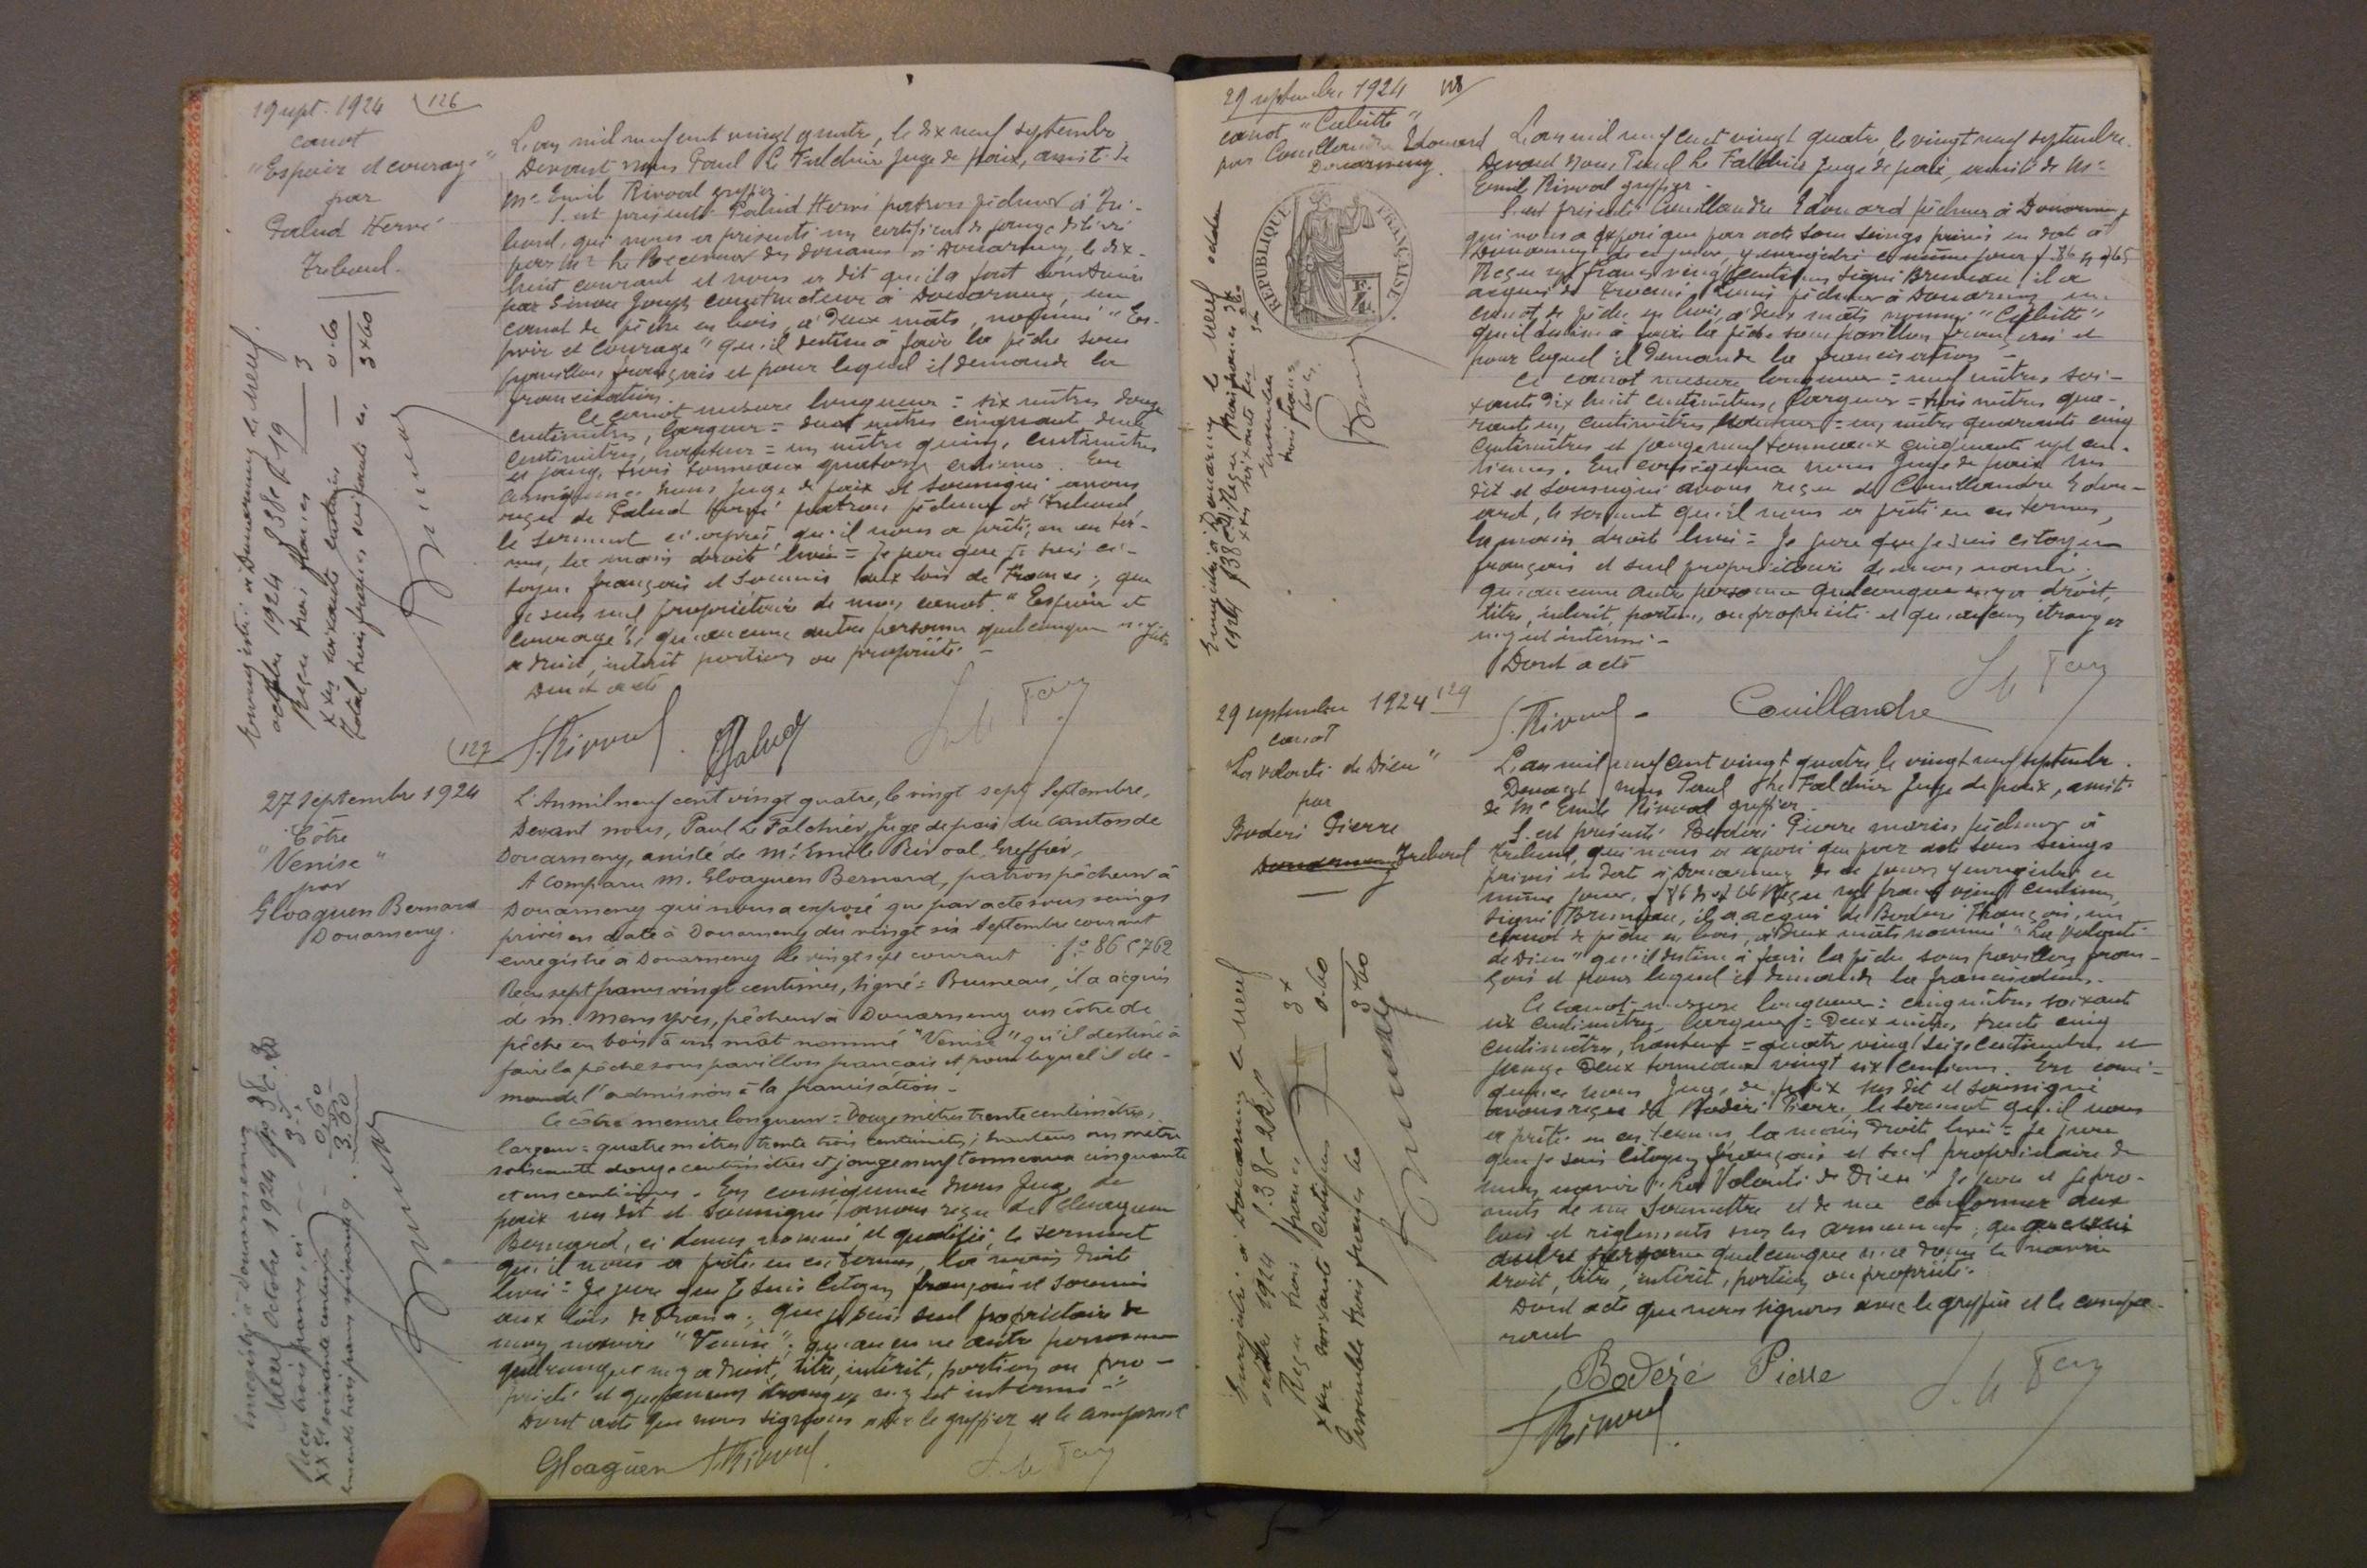 19 sept. 1924 126
canot
"Espoir et courage"
par
Palud Hervé
Tréboul.
Enregistré à Douarnenez le neuf
octobre 1924 f° 38 c 19
Reçu trois francs 3
xxes soixante centimes 0.60
Total trois francs soixante c. 3.60
Bruneau
L'an mil neuf cent vingt quatre, le dix neuf septembre
Devant nous Paul Le Falchier Juge de paix, assisté de
Me Emile Rivoal greffier.
S'est présenté Palud Hervé patron pêcheur à Tré-
boul, qui nous a présenté un certificat de jauge délivré
par Mr le Receveur des douanes à Douarnenez, le dix-
huit courant et nous a dit qu'il a fait construire
par Simon Joseph constructeur à Douarnenez, un
canot de pêche en bois à deux mâts, nommé "Es-
poir et courage" qu'il destine à faire la pêche sous
pavillon français et pour lequel il demande la
francisation.
Ce canot mesure longueur = six mètres douze
centimètres, largeur = deux mètres cinquante deux
centimètres, hauteur = un mètre quinze centimètres
et jauge trois tonneaux quatorze centièmes. En
conséquence nous Juge de paix et soussigné avons
reçu de Palud Hervé patron pêcheur à Tréboul
le serment ci-après, qu'il nous a prêté, en ces ter-
mes, la main droite levée = Je jure que je suis ci-
toyen français et soumis aux lois de France; que
je suis seul propriétaire de mon canot "Espoir et
courage"; qu'aucune autre personne quelconque n'y
a droit, intérêt portion ou propriété.-
Dont acte
E. Rivoal HPalud Le Fal
127
27 Septembre 1924
Côtre
"Venise"
par
Gloaguen Bernard
Douarnenez.
Enregistré à Douarnenez le
Neuf Octobre 1924 f° 38 c. 20
Reçu trois francs, ci 3.
xxes soixante centimes 0.60
Ensemble trois francs soixante 3.60
Bruneau
L'An mil neuf cent vingt quatre, le vingt sept Septembre,
Devant nous, Paul Le Falchier, Juge de paix du canton de
Douarnenez, assisté de Me Emile Rivoal, Greffier,
A Comparu M. Gloaguen Bernard, patron pêcheur à
Douarnenez qui nous a exposé que par acte sous seings
privés en date à Douarnenez du vingt six Septembre courant
enregistré à Douarnenez le vingt sept courant f° 86 c 762
Reçu sept francs vingt centimes, Signé = Bruneau, il a acquis
de M. Mens Yves, pêcheur à Douarnenez un côtre de
pêche en bois à un mât nommé "Venise" qu'il destine à
faire la pêche sous pavillon français et pour lequel il de-
mande l'admission à la francisation.-
Ce côtre mesure longueur = Douze mètres trente centimètres,
largeur = quatre mètres trente trois centimètres; hauteur un mètre
soixante douze centimètres et jauge neuf tonneaux cinquante
et un centièmes. En conséquence nous Juge de
paix sus dit et soussigné avons reçu de Gloaguen
Bernard, ci dessus nommé et qualifié, le serment
qu'il nous a prêté en ces termes, la main droite
levée = Je jure que je suis citoyen français et soumis
aux lois de France; que je suis seul propriétaire de
mon navire "Venise"; qu'aucune autre personne
quelconque n'y a droit, titre, intérêt, portion ou pro-
priété et qu'aucun étranger n'y est intéressé.-
Dont acte que nous signons avec le greffier et le comparant
Gloaguen E. Rivoal Le Fal
29 septembre 1924 128
canot "Calutte"
par Couillandre Edouard
Douarnenez.
RÉPUBLIQUE FRANÇAISE
Enregistré à Douarnenez le neuf octobre
1924 f° 38 c 21 Reçu trois francs 3x
xxes soixante c. 0.60
Ensemble 3.60
trois francs
60 c.
Bruneau
L'an mil neuf cent vingt quatre, le vingt neuf septembre.
Devant nous Paul Le Falchier Juge de paix, assisté de Me
Emile Rivoal greffier.
S'est présenté Couillandre Edouard pêcheur à Douarnenez
qui nous a exposé que par acte sous seings privés en date à
Douarnenez de ce jour, y enregistré ce même jour f° 86 c 765
Reçu sept francs vingt centimes signé Bruneau, il a
acquis de Louis pêcheur à Douarnenez un
canot de pêche en bois, à deux mâts nommé "Calutte"
qu'il destine à faire la pêche sous pavillon français et
pour lequel il demande la francisation.-
Ce canot mesure longueur = neuf mètres soi-
xante dix huit centimètres, largeur = trois mètres qua-
rante un centimètres hauteur = un mètre quarante cinq
centimètres et jauge neuf tonneaux cinquante sept cen-
tièmes. En conséquence nous Juge de paix sus
dit et soussigné avons reçu de Couillandre Edou-
ard, le serment qu'il nous a prêté en ces termes,
la main droite levée = Je jure que je suis citoyen
français et seul propriétaire de mon navire;
qu'aucune autre personne quelconque n'y a droit,
titre, intérêt, portion, ou propriété et qu'aucun étranger
n'y est intéressé.-
Dont acte
E. Rivoal Couillandre Le Fal
29 septembre 1924 129
canot
"La volonté de Dieu"
par
Bodéré Pierre
Douarnenez Tréboul
Enregistré à Douarnenez le neuf
octobre 1924 f° 38 c 22
Reçu trois francs 3x
xxes soixante centimes 0.60
Ensemble trois francs 60 3.60
Bruneau
L'an mil neuf cent vingt quatre le vingt neuf septembre.
Devant nous Paul Le Falchier Juge de paix, assisté
de Me Emile Rivoal greffier.
S'est présenté Bodéré Pierre marin pêcheur à
Tréboul, qui nous a exposé que par acte sous seings
privés en date à Douarnenez de ce jour, y enregistré ce
même jour, f° 86 c 766 Reçu sept francs vingt centimes,
signé Bruneau, il a acquis de Bodéré François, un
canot de pêche en bois, à deux mâts nommé "La Volonté
de Dieu" qu'il destine à faire la pêche sous pavillon fran-
çais et pour lequel il demande la francisation.-
Ce canot mesure longueur = cinq mètres soixante
six centimètres, largeur = Deux mètres, trente cinq
centimètres, hauteur = quatre vingt seize centimètres et
jauge Deux tonneaux vingt six centièmes. En consé-
quence nous Juge de paix sus dit et soussigné
avons reçu de Bodéré Pierre le serment qu'il nous
a prêté en ces termes la main droite levée = Je jure
que je suis citoyen français et seul propriétaire de
mon navire "La Volonté de Dieu" Je jure et je pro-
mets de me soumettre et de me conformer aux
lois et règlements sur les armements; qu'aucune
autre personne quelconque n'a dans le navire
droit, titre, intérêt, portion ou propriété.
Dont acte que nous signons avec le greffier et le compa-
rant
Bodéré Pierre Le Fal
E. Rivoal